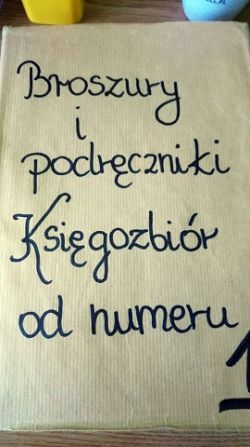 Broszury
i
podręczniki
Księgozbiór
od numeru
1